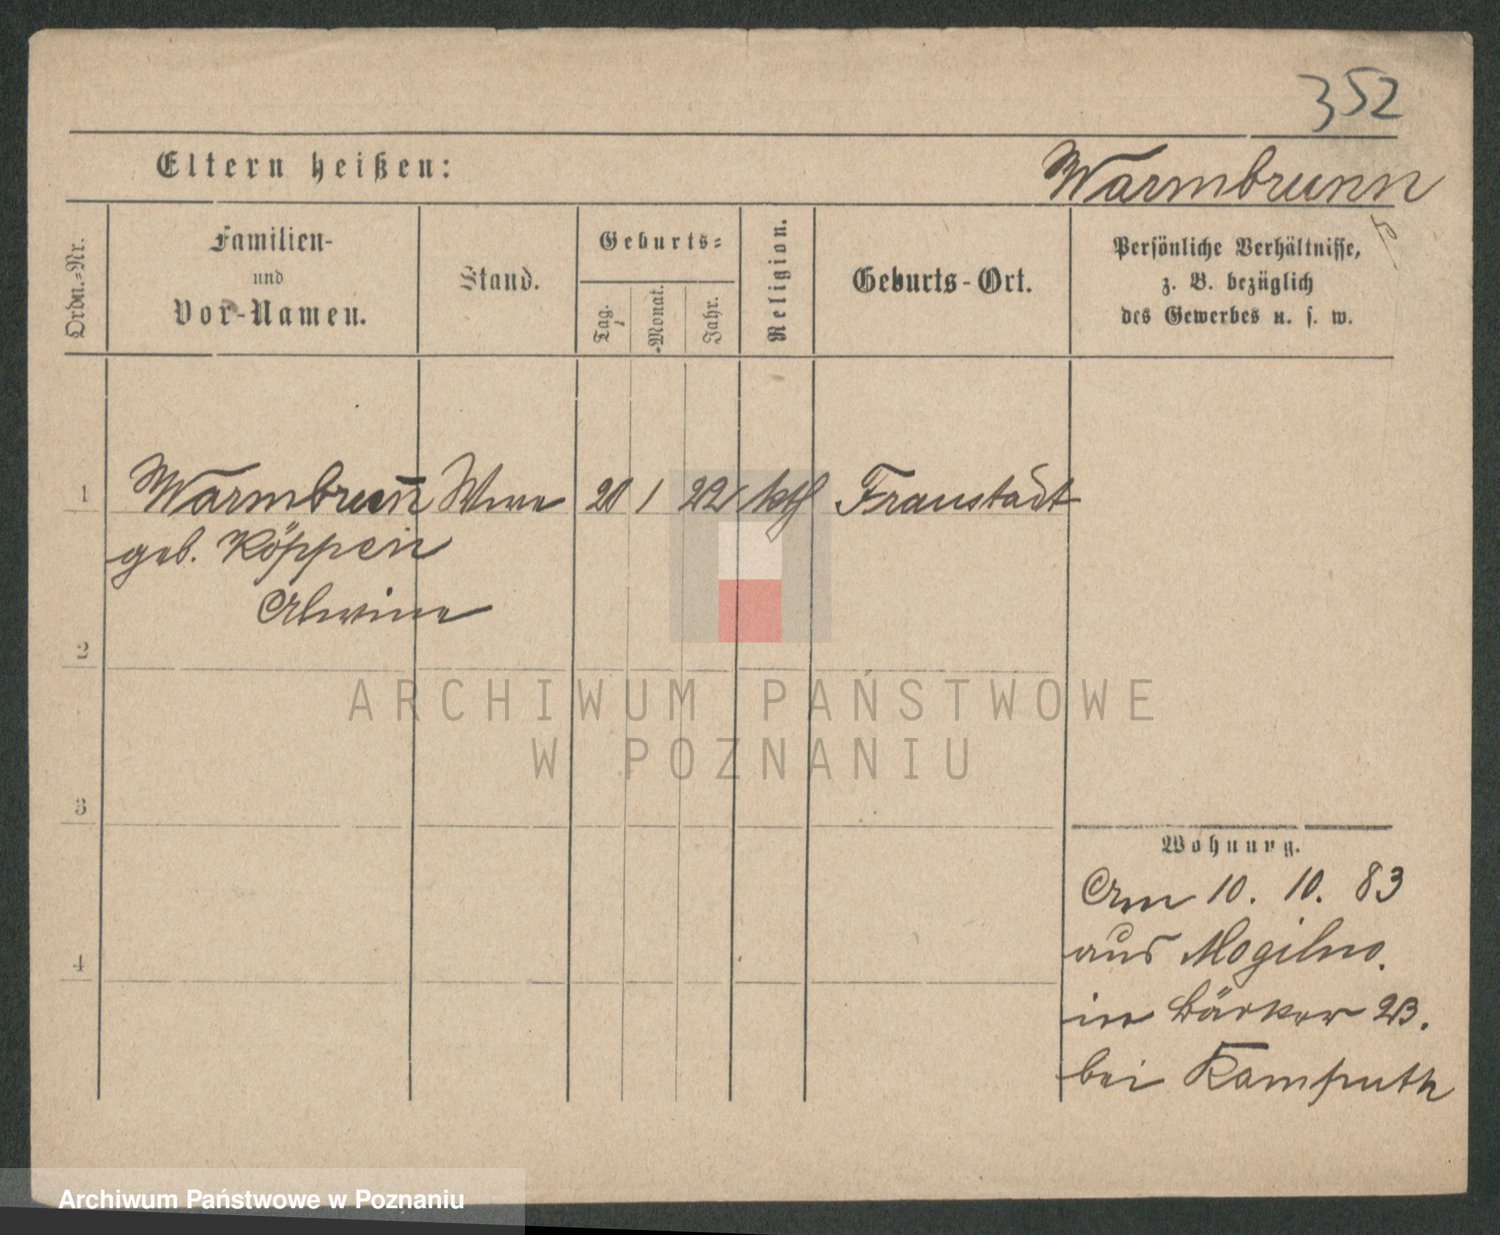 352
Eltern heißen:
Warmbrunn
Ordn.-Nr.
Familien-
und
Vor-Namen.
Stand.
Geburts-
Tag.
Monat.
Jahr.
Religion.
Geburts-Ort.
Persönliche Verhältnisse,
z. B. bezüglich
des Gewerbes u. s. w.
1 Warmbrun̄ Wwe 20 1 22 kth Fraustadt
geb. Köppen
Alwine
2
3
4
Wohnung.
Am 10. 10. 83
aus Mogilno.
in Bärker
bei
ARCHIWUM PAŃSTWOWE
W POZNANIU
Archiwum Państwowe w Poznaniu